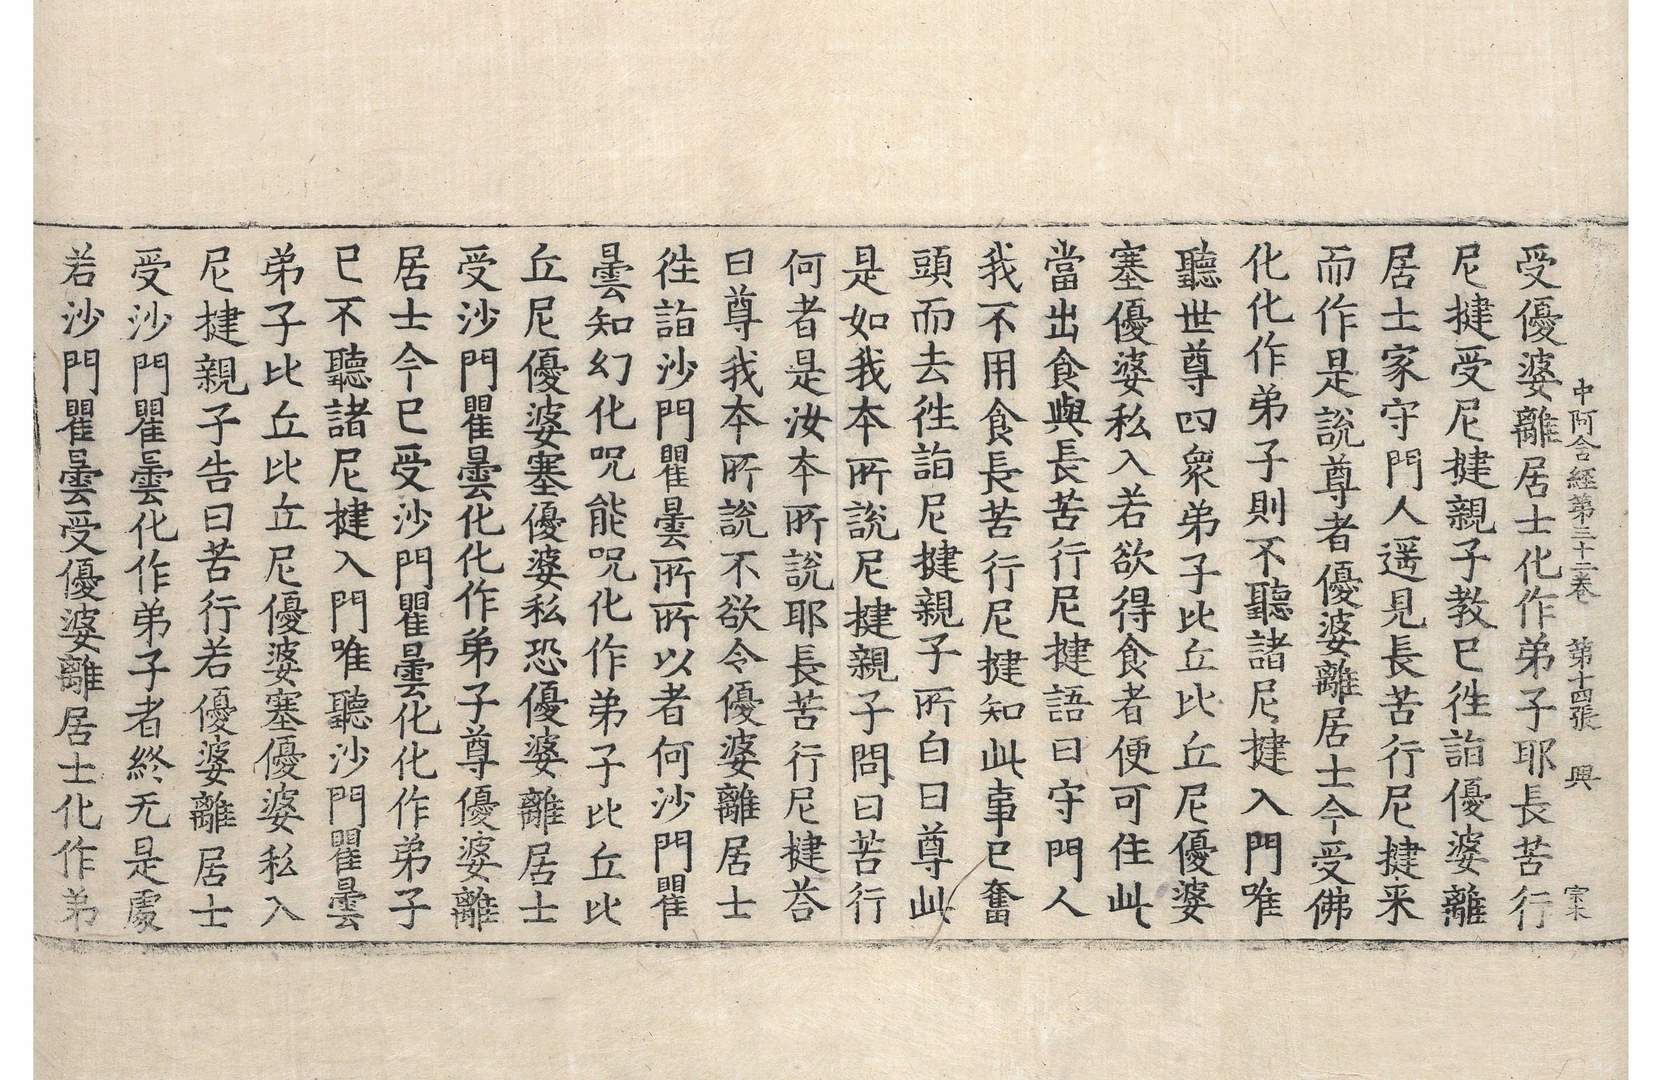 中阿含經第三十二卷　第十四張　興　宗木
受優婆離居士化作弟子耶長苦行
尼揵受尼揵親子教已徃詣優婆離
居士家守門人遥見長苦行尼揵来
而作是說尊者優婆離居士今受佛
化化作弟子則不聽諸尼揵入門唯
聽世尊四衆弟子比丘比丘尼優婆
塞優婆私入若欲得食者便可住此
當出食與長苦行尼揵語曰守門人
我不用食長苦行尼揵知此事已奮
頭而去徃詣尼揵親子所白曰尊此
是如我本所說尼揵親子問曰苦行
何者是汝本所說耶長苦行尼揵荅
曰尊我本所說不欲令優婆離居士
徃詣沙門瞿曇所所以者何沙門瞿
曇知幻化呪能呪化作弟子比丘比
丘尼優婆塞優婆私恐優婆離居士
受沙門瞿曇化化作弟子尊優婆離
居士今已受沙門瞿曇化化作弟子
已不聽諸尼揵入門唯聽沙門瞿曇
弟子比丘比丘尼優婆塞優婆私入
尼揵親子告曰苦行若優婆離居士
受沙門瞿曇化作弟子者終无是處
若沙門瞿曇受優婆離居士化作弟